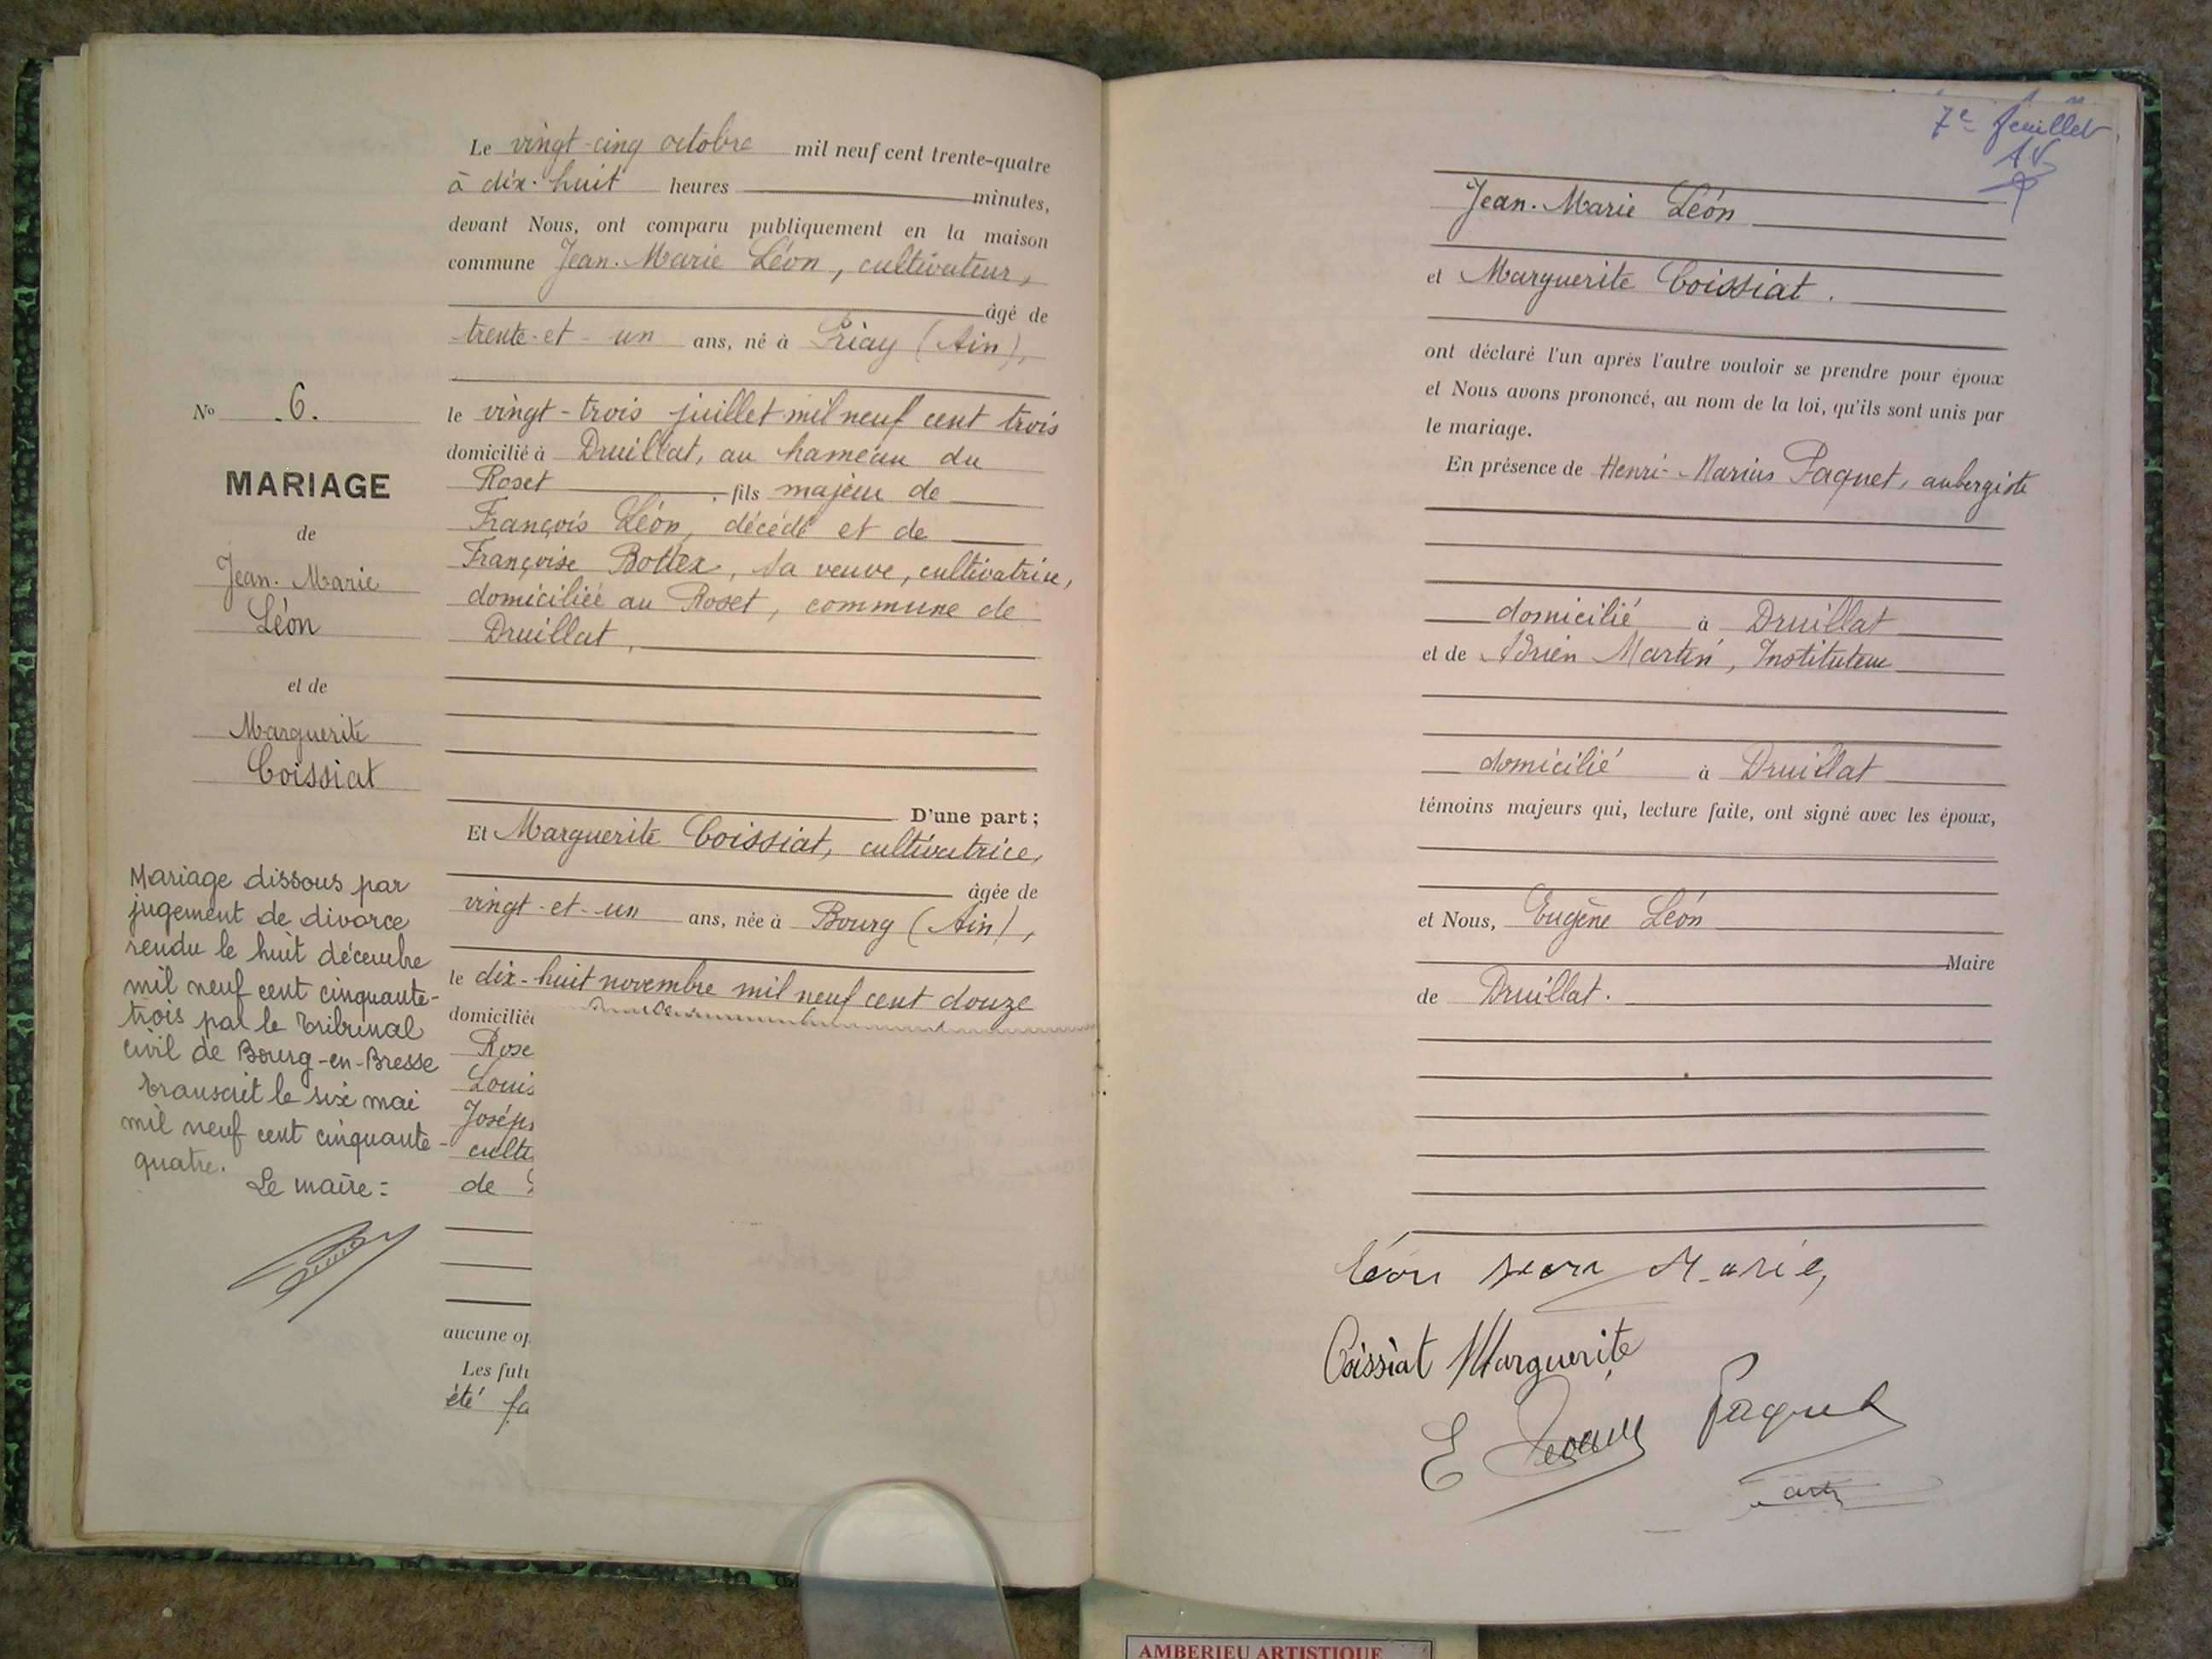 Le vingt-cinq octobre mil neuf cent trente-quatre
à dix-huit heures minutes,
devant Nous, ont comparu publiquement en la maison
commune Jean-Marie Léon, cultivateur,
âgé de
trente-et-un ans, né à Priay (Ain),
le vingt-trois juillet mil neuf cent trois
domicilié à Druillat, au hameau du
Roset, fils majeur de
François Léon, décédé et de
Françoise Bottex, sa veuve, cultivatrice,
domiciliée au Roset, commune de
Druillat,
D'une part ;
Et Marguerite Coissiat, cultivatrice,
âgée de
vingt-et-un ans, née à Bourg (Ain),
le dix-huit novembre mil neuf cent douze
domiciliée
Rose
Louis
Josép
culti
de
aucune op
Les futu
été fa
No 6.
MARIAGE
de
Jean-Marie
Léon
et de
Marguerite
Coissiat
Mariage dissous par
jugement de divorce
rendu le huit décembre
mil neuf cent cinquante-
trois par le Tribunal
civil de Bourg-en-Bresse
transcrit le six mai
mil neuf cent cinquante-
quatre.
Le maire :
7e feuillet
Jean-Marie Léon
et Marguerite Coissiat.
ont déclaré l'un après l'autre vouloir se prendre pour époux
et Nous avons prononcé, au nom de la loi, qu'ils sont unis par
le mariage.
En présence de Henri-Marius Paquet, aubergiste
domicilié à Druillat
et de Adrien Martin, Instituteur
domicilié à Druillat
témoins majeurs qui, lecture faite, ont signé avec les époux,
et Nous, Eugène Léon
Maire
de Druillat.
Léon Jean Marie,
Coissiat Marguerite
E Léon Paquet
AMBERIEU ARTISTIQUE